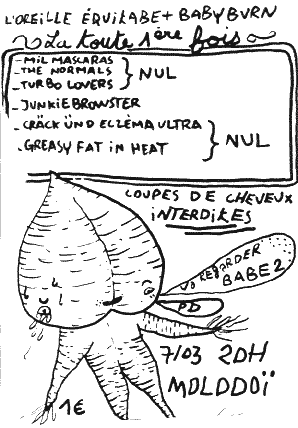 L'OREILLE ÉQUILABE + BABYBURN
La toute 1ère fois
- MIL MASCARAS
- THE NORMALS
- TURBO LOVERS
} NUL
- JUNKIE BROWSTER
- CRÄCK ÜND ECZÈMA ULTRA
- GREASY FAT IN HEAT
} NUL
COUPES DE CHEVEUX
INTERDITES
REGARDER
BABE 2
PD
7/03 20H
MOLODOÏ
1€